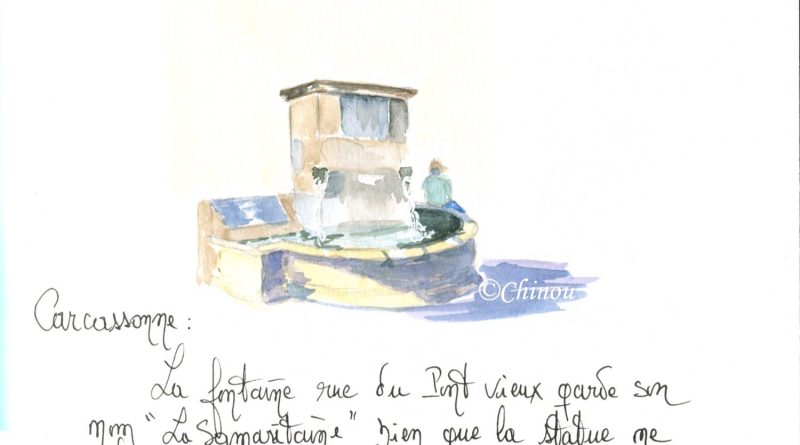 ©Chinou
Carcassonne :
La fontaine rue du Pont vieux garde son
nom "La Samaritaine" bien que la statue ne